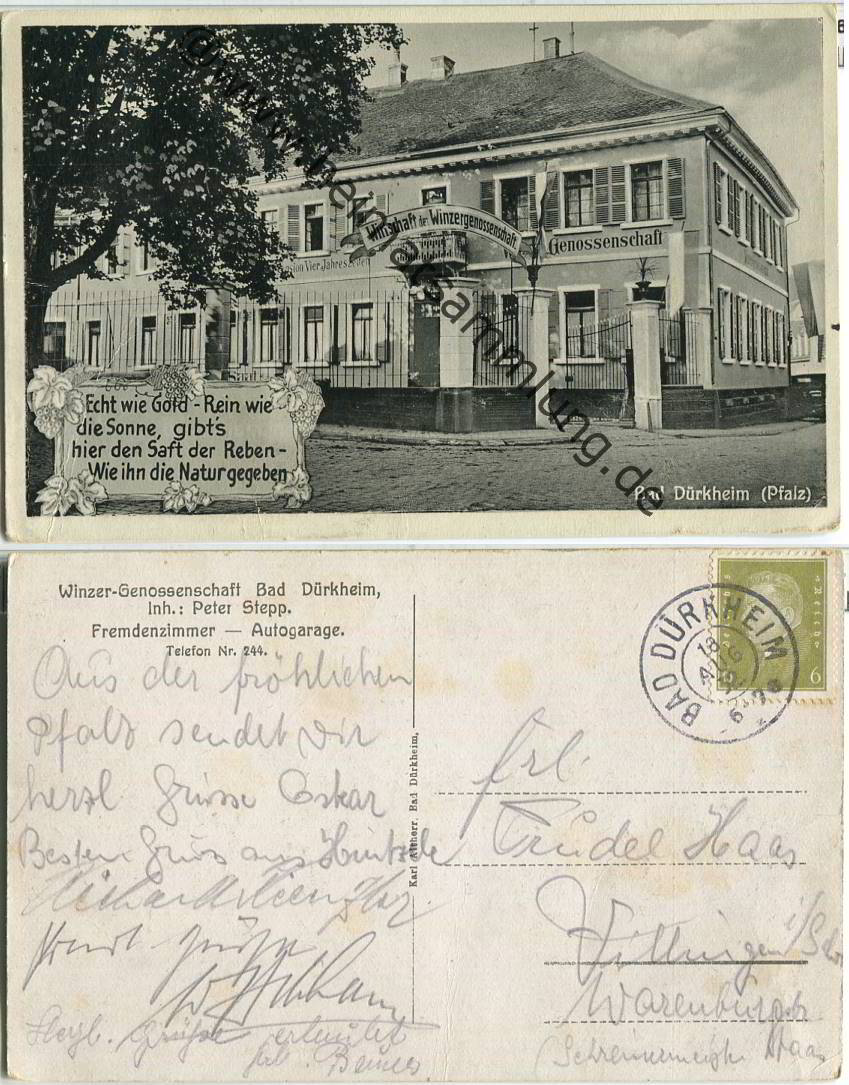 Wirtschaft der Winzergenossenschaft
Genossenschaft
Pension Vier Jahreszeiten
Echt wie Gold - Rein wie
die Sonne, gibt's
hier den Saft der Reben -
Wie ihn die Natur gegeben
Bad Dürkheim (Pfalz)
© www.heimatsammlung.de
Winzer-Genossenschaft Bad Dürkheim,
Inh.: Peter Stepp.
Fremdenzimmer — Autogarage.
Telefon Nr. 244.
Aus der fröhlichen
Pfalz sendet Dir
herzl. Grüsse Oskar
Besten Gruss aus
Herzl. Grüße
BAD DÜRKHEIM
18
AUG
6
Karl Bad Dürkheim,
Frl.
Trudel Haas
Villingen i/Schw
Warenburgstr.
(Schreinermeister Haas